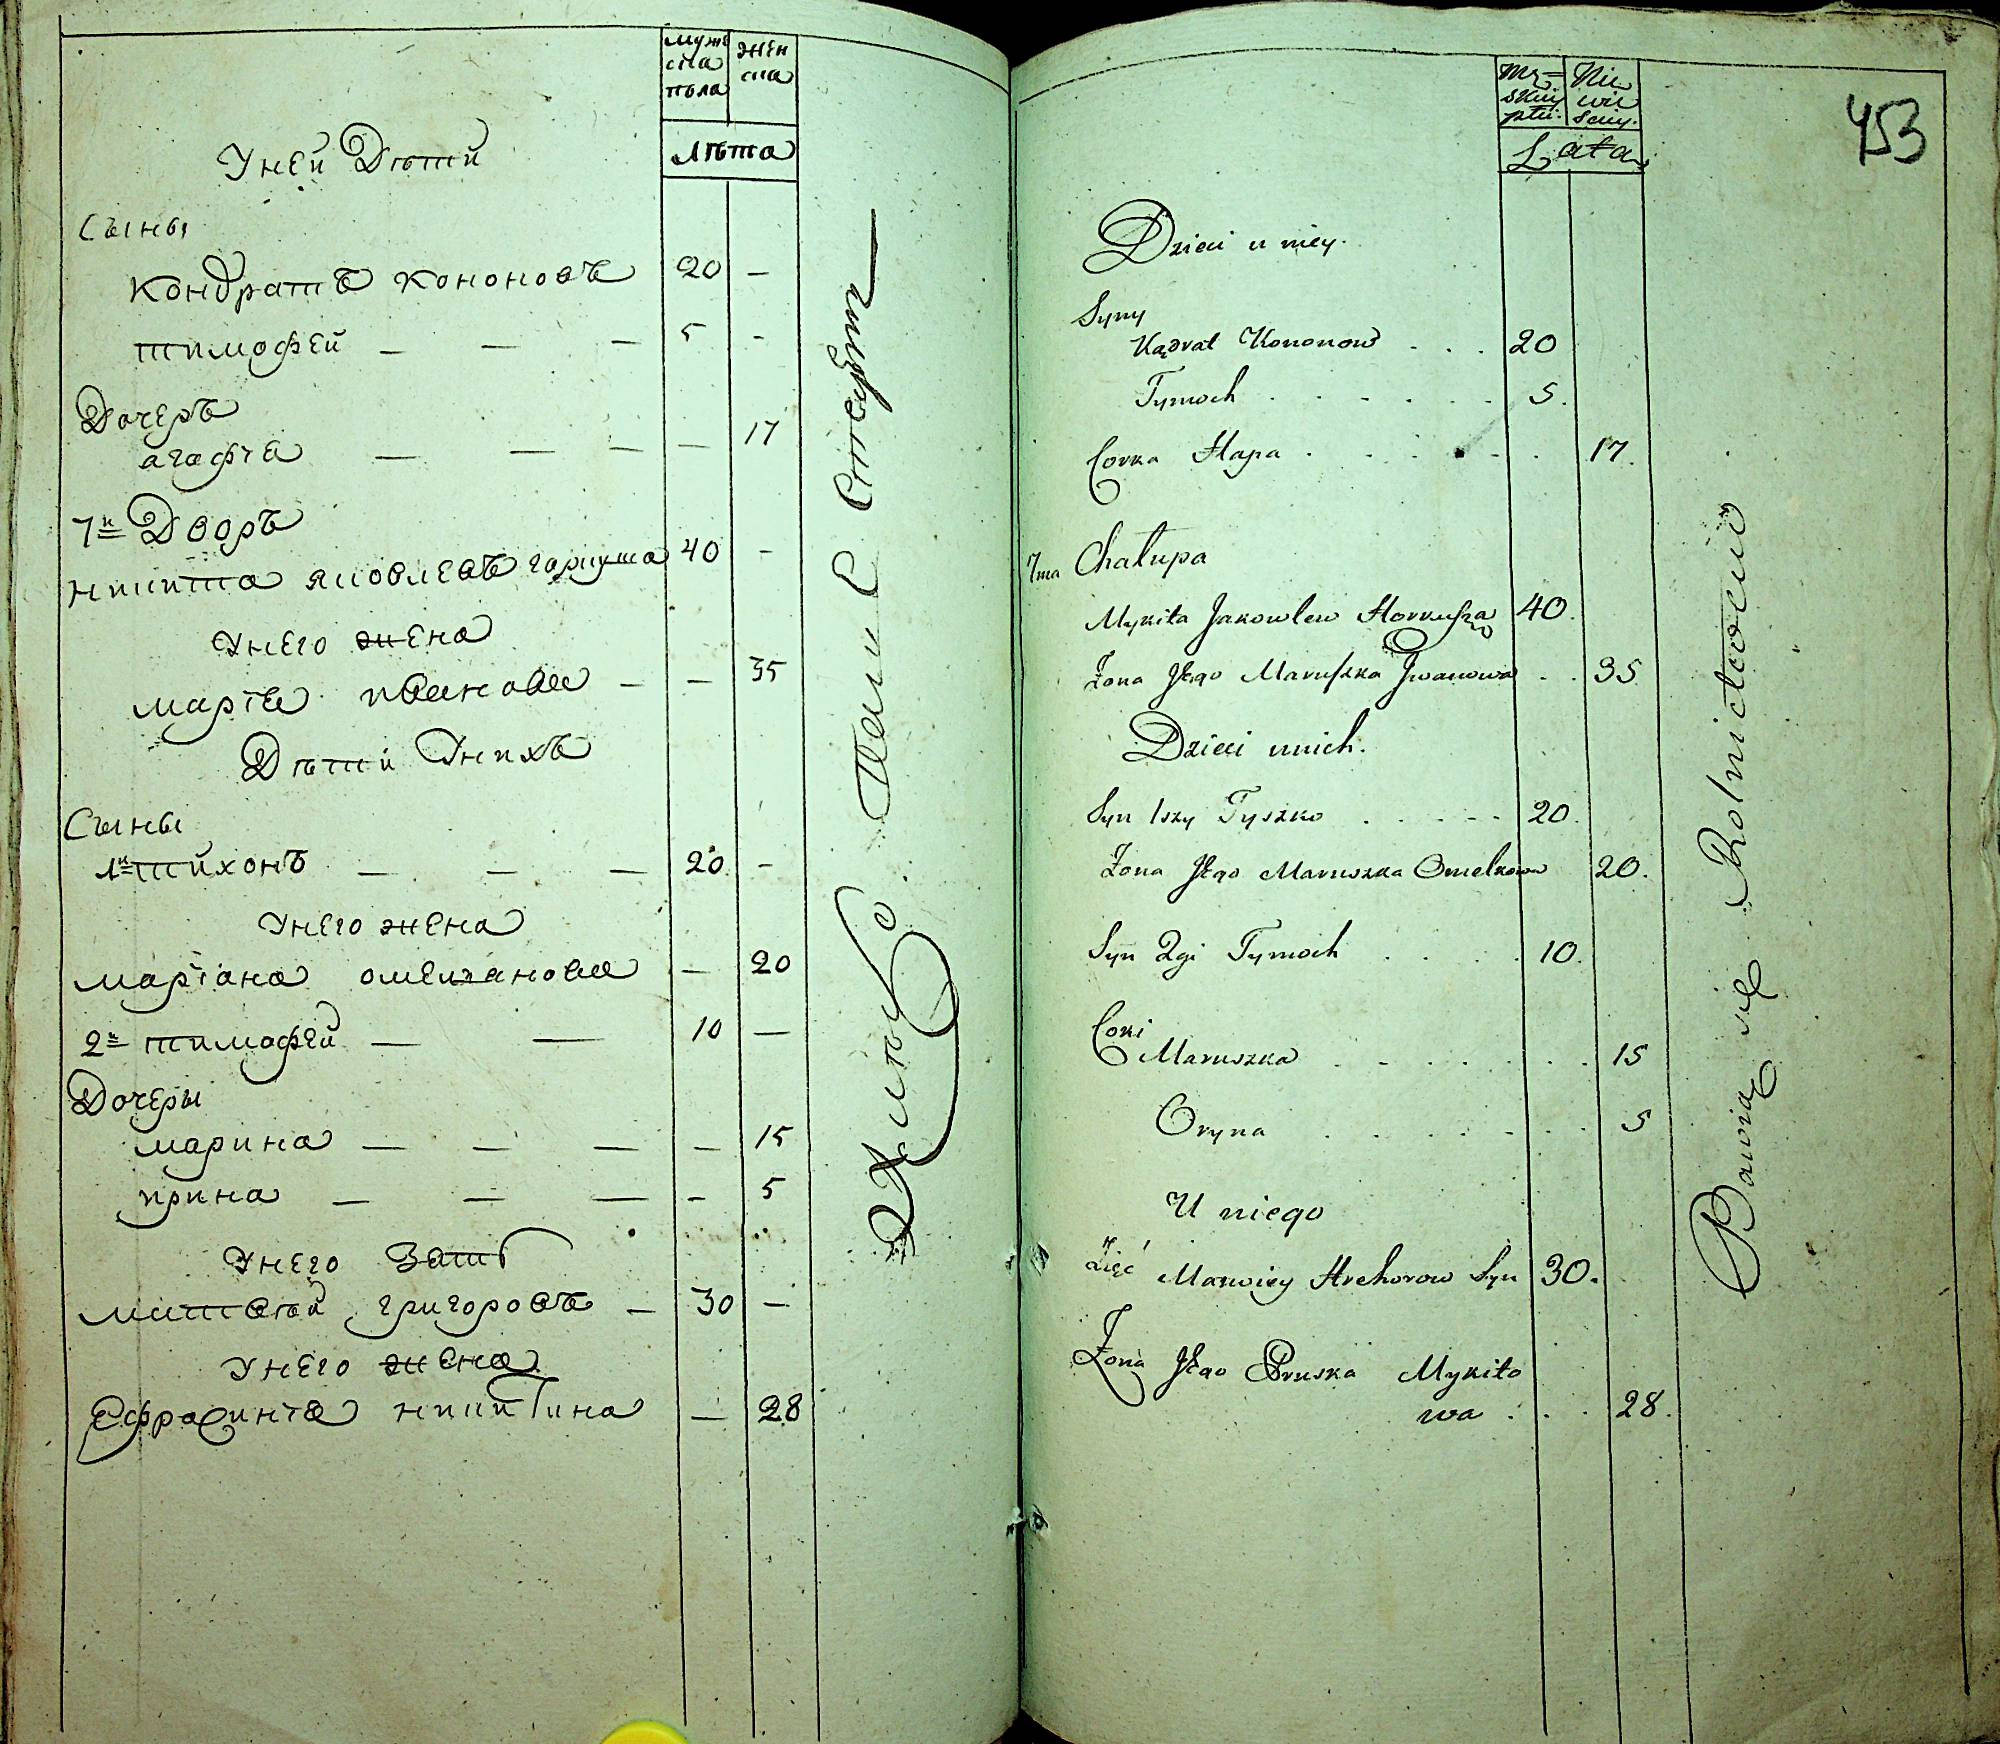 муже
ска
пола
жен
ска
лѣта
У ней Дѣтей
Сыны
Кондратъ Кононовъ 20 —
тимофей — — — 5 -
Дочеръ
агафіа — — — — 17
7й Дворъ
никита яковлевъ гаркуша 40 -
У него жена
маріа иванова — — 35
Дѣтей у нихъ
Сыны
1й тихонъ — — — 20 -
У него жена
маріана омельанова — 20
2й тимофей — — 10 —
Дочеры
марина — — — — 15
ирина — — — - 5
У него Зать
матвѣй григоровъ — 30 —
У него жена
Ефросиніа никитина — 28
Хлебо Паше Ствуют
453
Mę=
skiey
płci.
Nie
wie
sciey.
Lata
Dzieci u niey.
Syny
Kądrat Kononow . . . 20
Tymoch . . . . . . 5.
Corka Hapa . . . . . . 17.
7ma Chałupa
Mykita Jakowlew Horkusza 40.
Żona Jego Maruszka Iwanowa . . 35
Dzieci u nich.
Syn 1szy Tyszko . . . . . 20.
Żona Jego Maruszka Omelkowa 20.
Syn 2gi Tymoch . . . . 10.
Corki
Maruszka . . . . . . . 15
Oryna . . . . . . . 5
U niego
Zięć Matwiey Hrehorow Syn 30.
Żona Jego Pruska Mykito
wa . . . 28.
Bawią się Rolnictwem